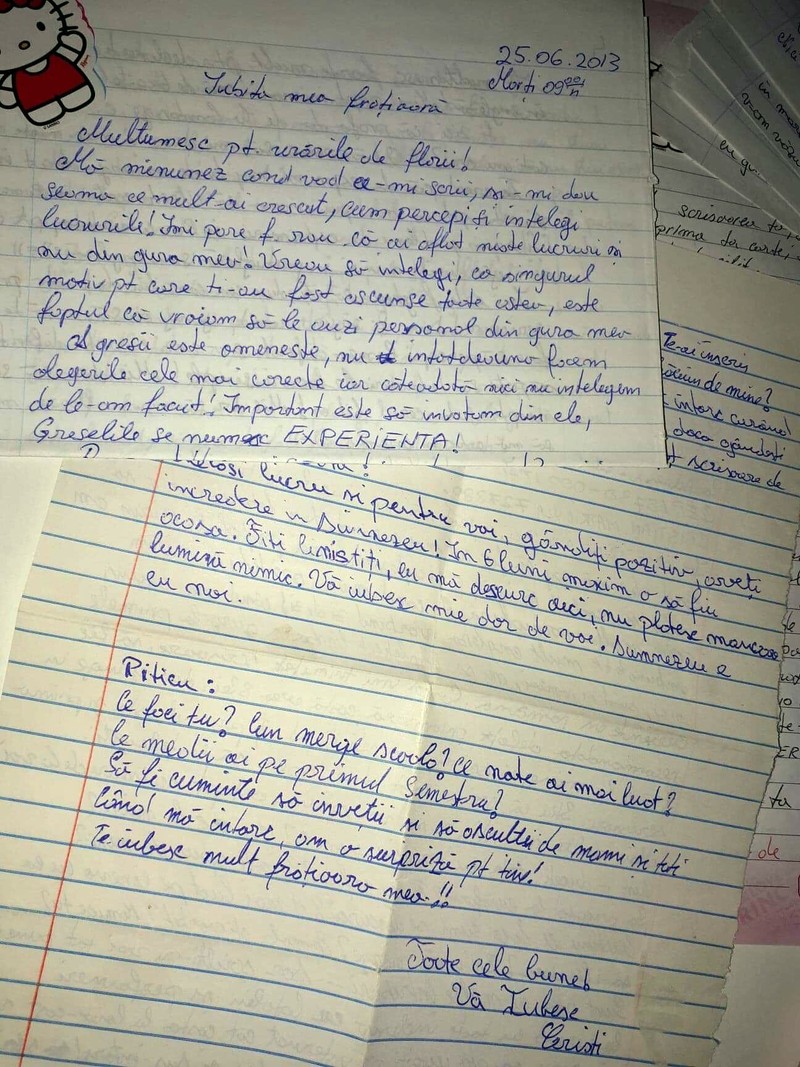 25.06.2013
Marți 09
Iubita mea frățioară
Multumesc pt. urările de florii!
Mă minunez cand văd ce-mi scrii, si-mi dau
seama ce mult ai crescut, cum percepi ti intelegi
lucrurile! Imi pare f. rau că ai aflat niste lucruri și
nu din gura mea! Vreau să intelegi, ca singurul
motiv pt care ti-au fost ascunse toate astea, este
faptul că vroiam să le auzi personal din gura mea
A gresii este omenește, nu intotdeauna facem
alegerile cele mai corecte iar câteodată nici nu intelegem
de le-am facut! Important este să invatam din ele,
Greselile se numesc EXPERIENTA!
lucru si pentru voi, gândiți pozitiv, aveți
incredere in Dumnezeu! In 6 luni maxim o să fiu
acasa. Fiti linistiți, eu mă descurc aici, nu platesc mancare
lumină nimic. Vă iubesc mie dor de voi. Dumnezeu e
cu noi.
Piticu:
Ce faci tu? Cum merge scoala? Ce note ai mai luat?
Ce medii ai pe primul semestru?
Să fi cuminte să inveții si să asculti de mami și tati
Când mă intorc, am o surpriză pt tine!
Te iubesc mult frațioara mea!!
Toate cele bune!
Vă Iubesc
Cristi
in
eu
scrisoarea ta,
prima ta carte,
Te-ai inscris
de mine?
intorc curând
daca gândesti
scrisoare de
ta
de